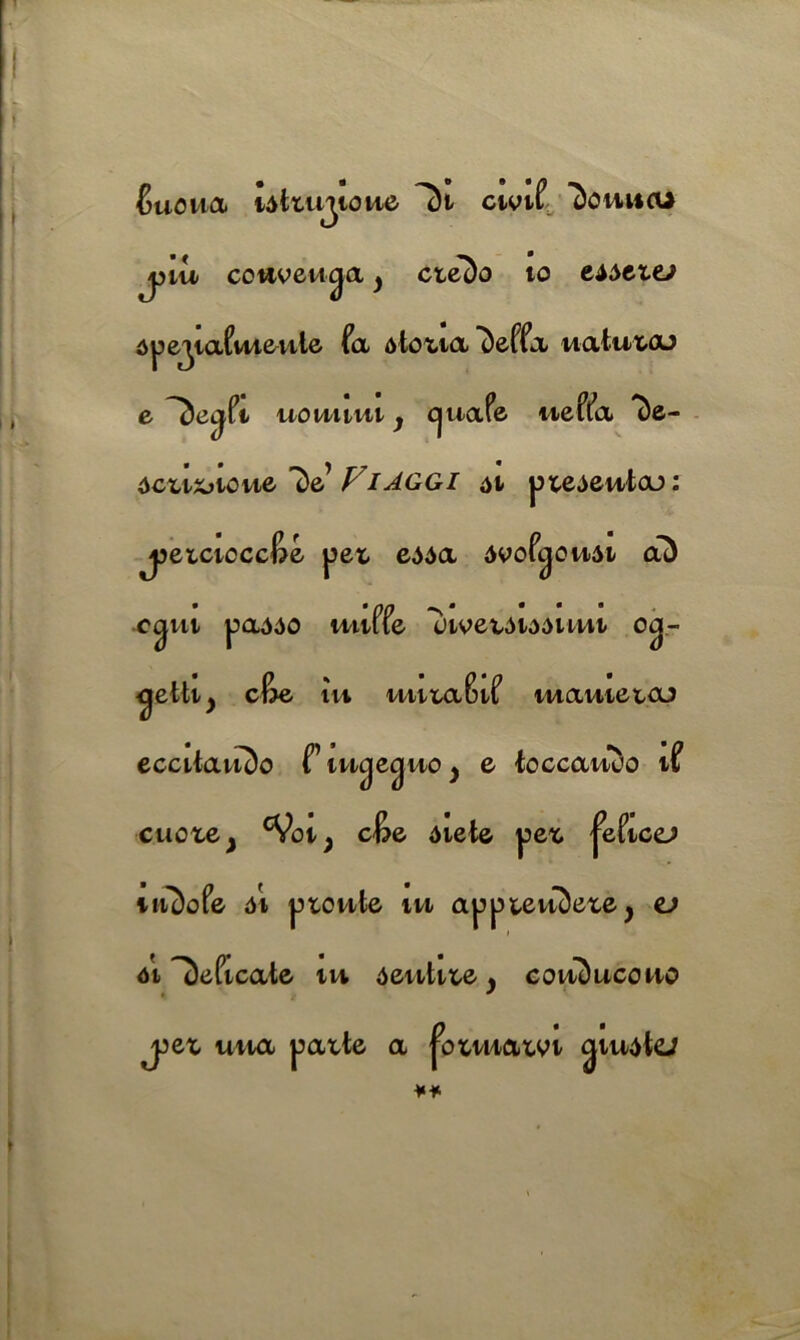 buona istruzione di civil donna
più convenga, credo io essere
spezialmente la storia della natura
e degli uomini, quale nella de-
scrizione de' VIAGGI si presenta:
perciocchè per essa svolgonsi ad
ogni passo mille diversissimi og-
getti, che in mirabil maniera
eccitando l'ingegno, e toccando il
cuore, Voi, che siete per felice
indole sì pronte in apprendere, e
sì delicate in sentire, conducono
per una parte a formarvi giuste
**